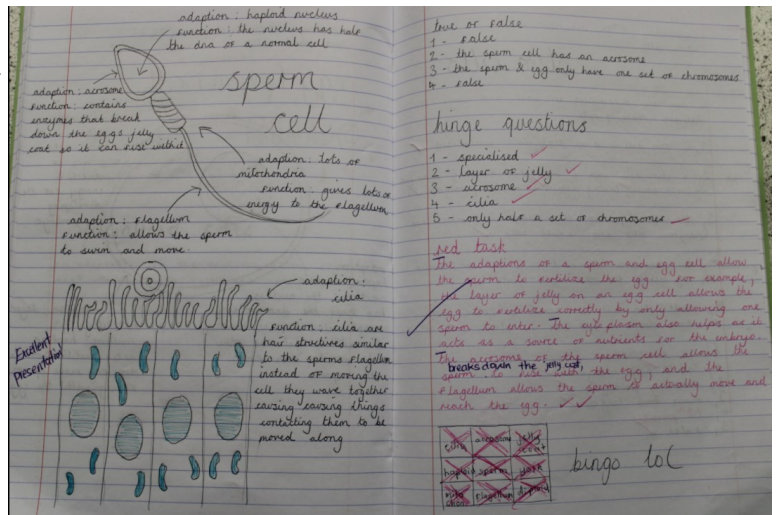 adaption : haploid nucleus
function : the nucleus has half
the dna of a normal cell
sperm
cell
adaption : acrosome
function : contains
enzymes that break
down the eggs jelly
coat so it can fuse with it
adaption : lots of
mitochondria
function : gives lots of
energy to the flagellum
adaption : flagellum
function : allows the sperm
to swim and move.
adaption :
cilia
function : cilia are
hair structures similar
to the sperms flagellum
instead of moving the
cell they wave together
causing causing things
contacting them to be
moved along
Excellent
presentation!
true or false
1 - false
2 - the sperm cell has an acrosome
3 - the sperm & egg only have one set of chromosomes
4 - false
hinge questions
1 - specialised
2 - layer of jelly
3 - acrosome
4 - cilia
5 - only half a set of chromosomes
red task
The adaptions of a sperm and egg cell allow
the sperm to fertilize the egg. For example,
the layer of jelly on an egg cell allows the
egg to fertilize correctly by only allowing one
sperm to enter. The cytoplasm also helps as it
acts as a source of nutrients for the embryo.
The acrosome of the sperm cell allows the
breaks down the jelly coat,
sperm to fuse with the egg, and the
flagellum allows the sperm to actually move and
reach the egg.
cilia acrosome jelly coat
haploid sperm
flagellum diploid
bingo lol